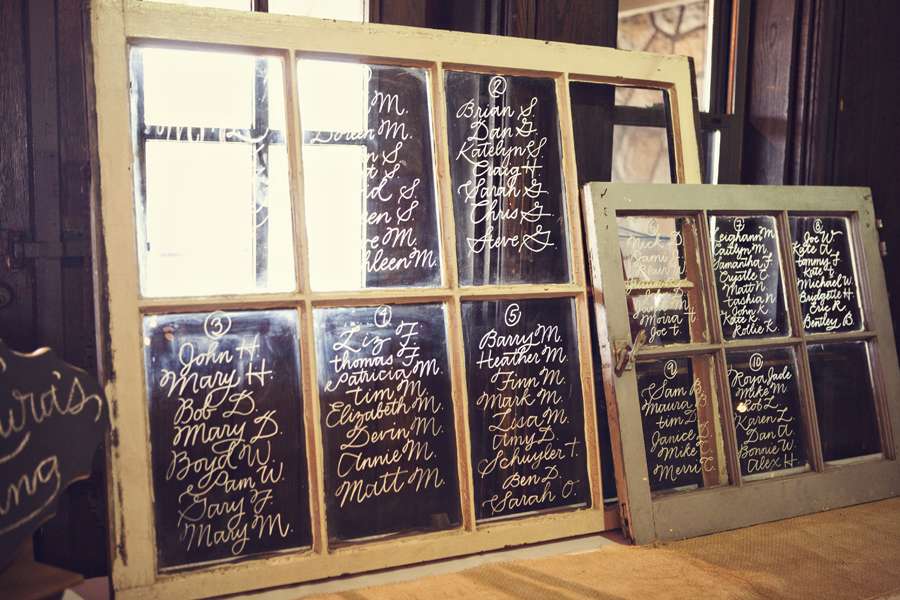 M.
M.
S.
S.
S.
M.
M.
②
Brian S.
Dan G.
Katelyn S.
Craig H.
Sarah G.
Chris G.
Steve G.
③
John H.
Mary H.
Bob D.
Mary D.
Boyd W.
Pam W.
Gary F.
Mary M.
④
Liz F.
thomas F.
Patricia M.
Tim M.
Elizabeth M.
Devin M.
Annie M.
Matt M.
⑤
Barry M.
Heather M.
Finn M.
Mark M.
Lisa M.
Amy D.
Schuyler T.
Ben D.
Sarah O.
Nick D.
Morra T.
Joe T.
⑦
Leighann M.
Caitlyn M.
Samantha F.
Crystle C.
Matt N.
tashia N.
John K.
Kate K.
Kollie K.
⑧
Joe W.
Kate A.
tammy J.
Kate F.
Michael W.
Bridgette H.
Eric R.
Bentley B.
⑨
Sam B.
Maura B.
tim D.
Janice
Mike
Merri C.
⑩
Roya Jade
Mike M.
Rob L.
Karen Z.
Dan A.
Bonnie W.
Alex H.
ura's
ng